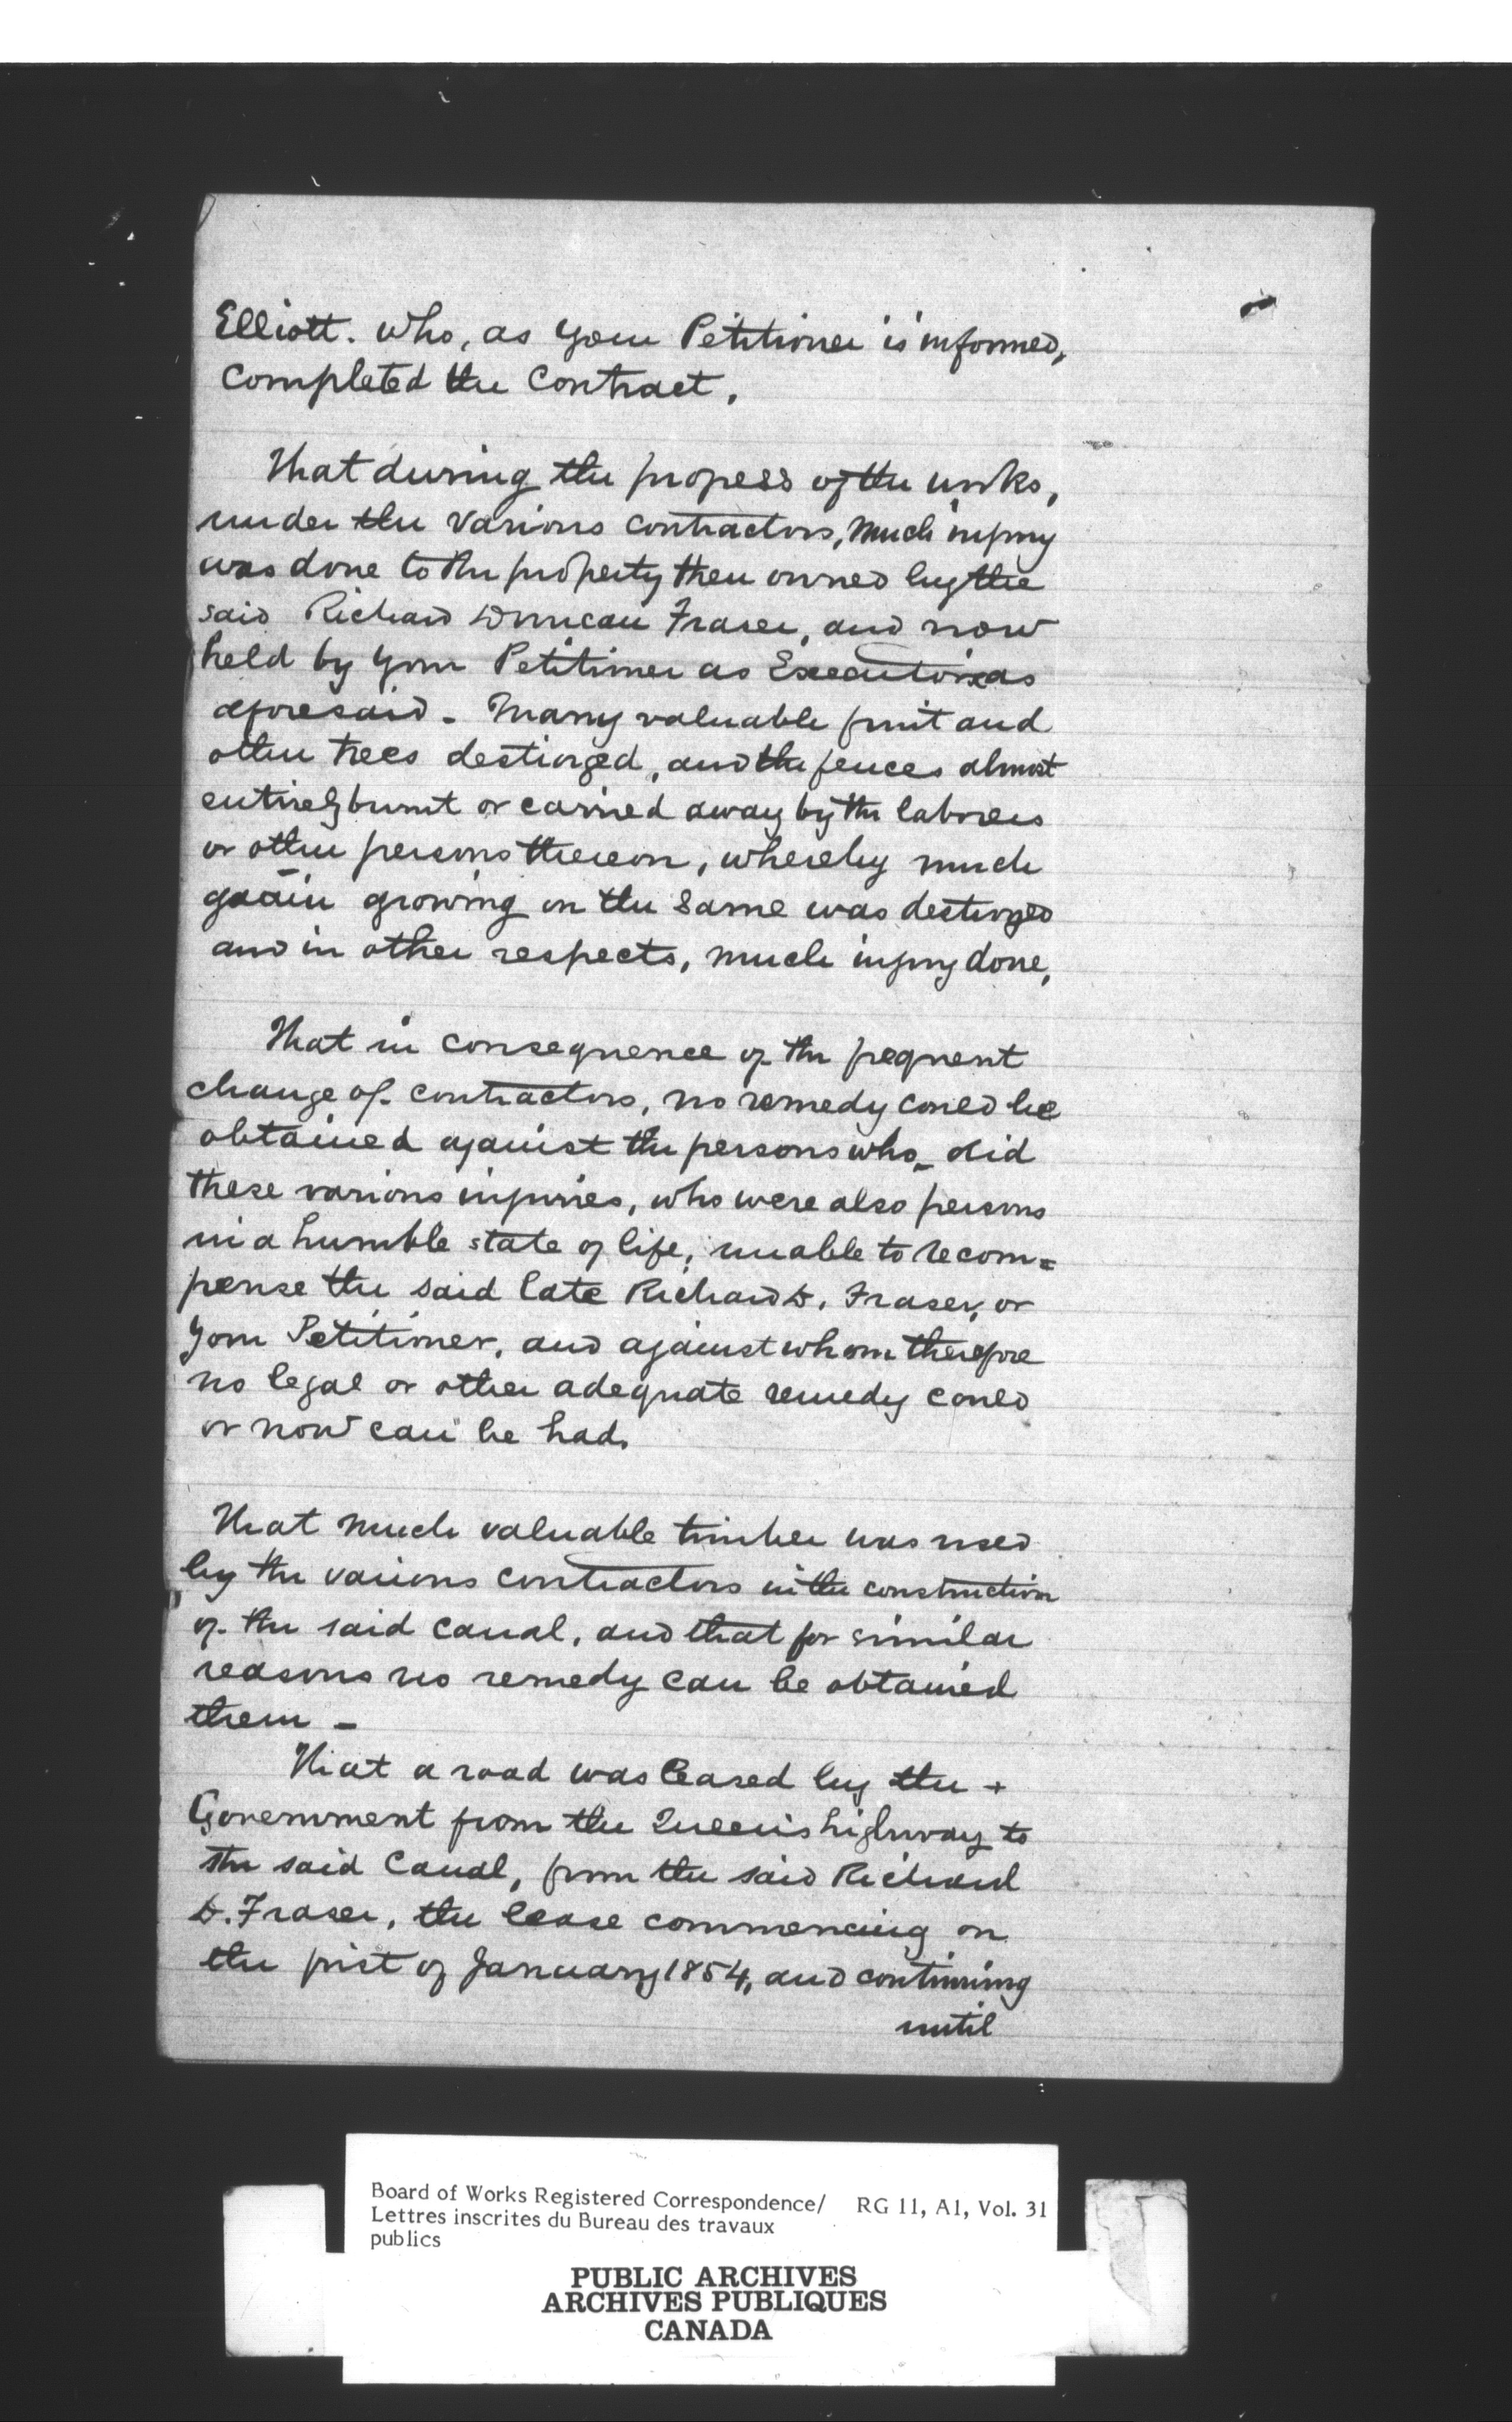 Elliott. who, as your Petitioner is informed,
completed the Contract.
That during the progress of the works,
under the various contractors, much injury
was done to the property then owned by the
said Richard Duncan Fraser, and now
held by your Petitioner as Executrix as
aforesaid - Many valuable fruit and
other trees destroyed, and the fences almost
entirely burnt or carried away by the laborers
or other persons thereon, whereby much
grain growing on the same was destroyed
and in other respects, much injury done,
That in consequence of the frequent
change of contractors, no remedy could be
obtained against the persons who did
these various injuries, who were also persons
in a humble state of life, unable to recom=
pense the said late Richard D. Fraser, or
your Petitioner, and against whom therefore
no legal or other adequate remedy could
or now can be had.
That much valuable timber was used
by the various contractors in the construction
of the said canal, and that for similar
reasons no remedy can be obtained
them -
That a road was leased by the +
Government from the Queen's highway to
the said Canal, from the said Richard
D. Fraser, the lease commencing on
the first of January 1854, and continuing
until
Board of Works Registered Correspondence/ RG 11, A1, Vol. 31
Lettres inscrites du Bureau des travaux
publics
PUBLIC ARCHIVES
ARCHIVES PUBLIQUES
CANADA